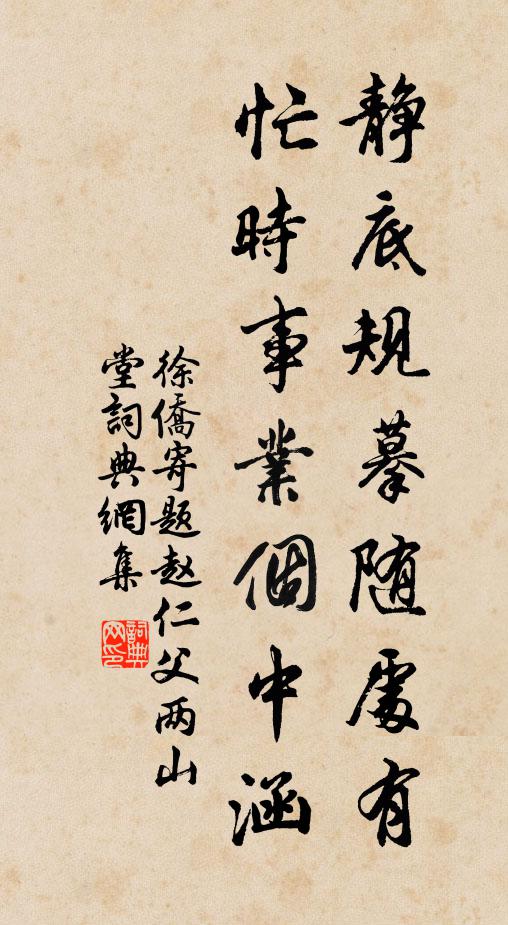 静底规摹随處有
忙時事業個中涵
徐僑寄题赵仁父两山
堂詞典網集
詞典
网印